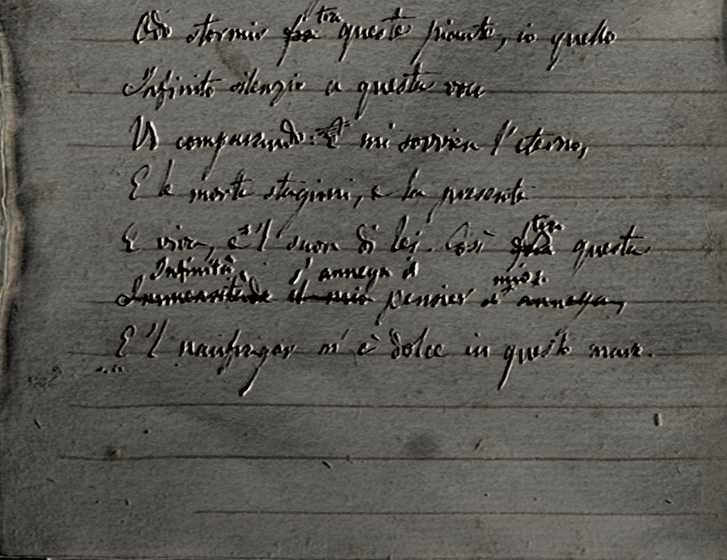 Odo stormir fra tra queste piante, io quello
Infinito silenzio a questa voce
Vo comparando: E mi sovvien l'eterno,
E le morte stagioni, e la presente
E viva, e 'l suon di lei. Così fra tra questa
Infinità s'annega il mio
Immensitade il mio pensier s'annega,
E 'l naufragar m'è dolce in questo mare.